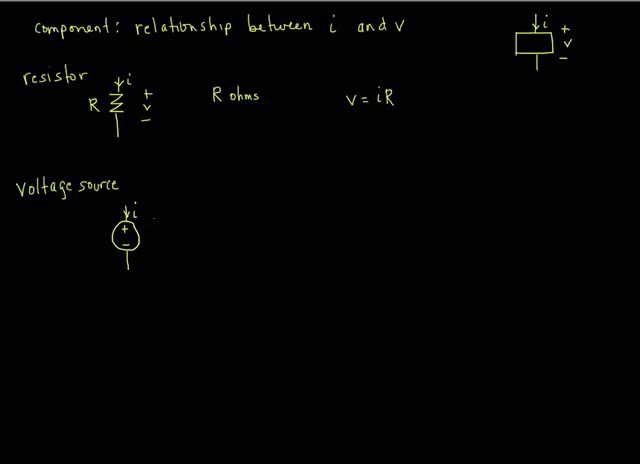 component: relationship between i and v
i
+
v
−
resistor
i
R
+
v
−
R ohms
v = iR
Voltage source
i
+
−